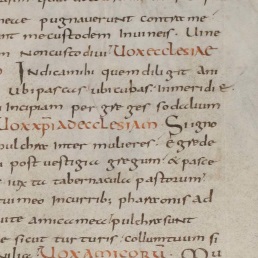 meae pugnaverunt contra me
unt me custodem in vineis. Vine
m non custodivi. Vox ecclesiae
Indica mihi quem diligit ani
ubi pascas ubi cubas. in meridie
incipiam per greges sodalium
Vox xpi ad ecclesiam Si igno
pulchra inter mulieres. Egrede
post vestigia gregum. & pasce
iuxta tabernacula pastorum.
tui meo in curribus pharaonis ad
vite amica mea. pulchrae sunt
e sicut turturis. collum tuum si
nilia. Vox amicorum. Mu